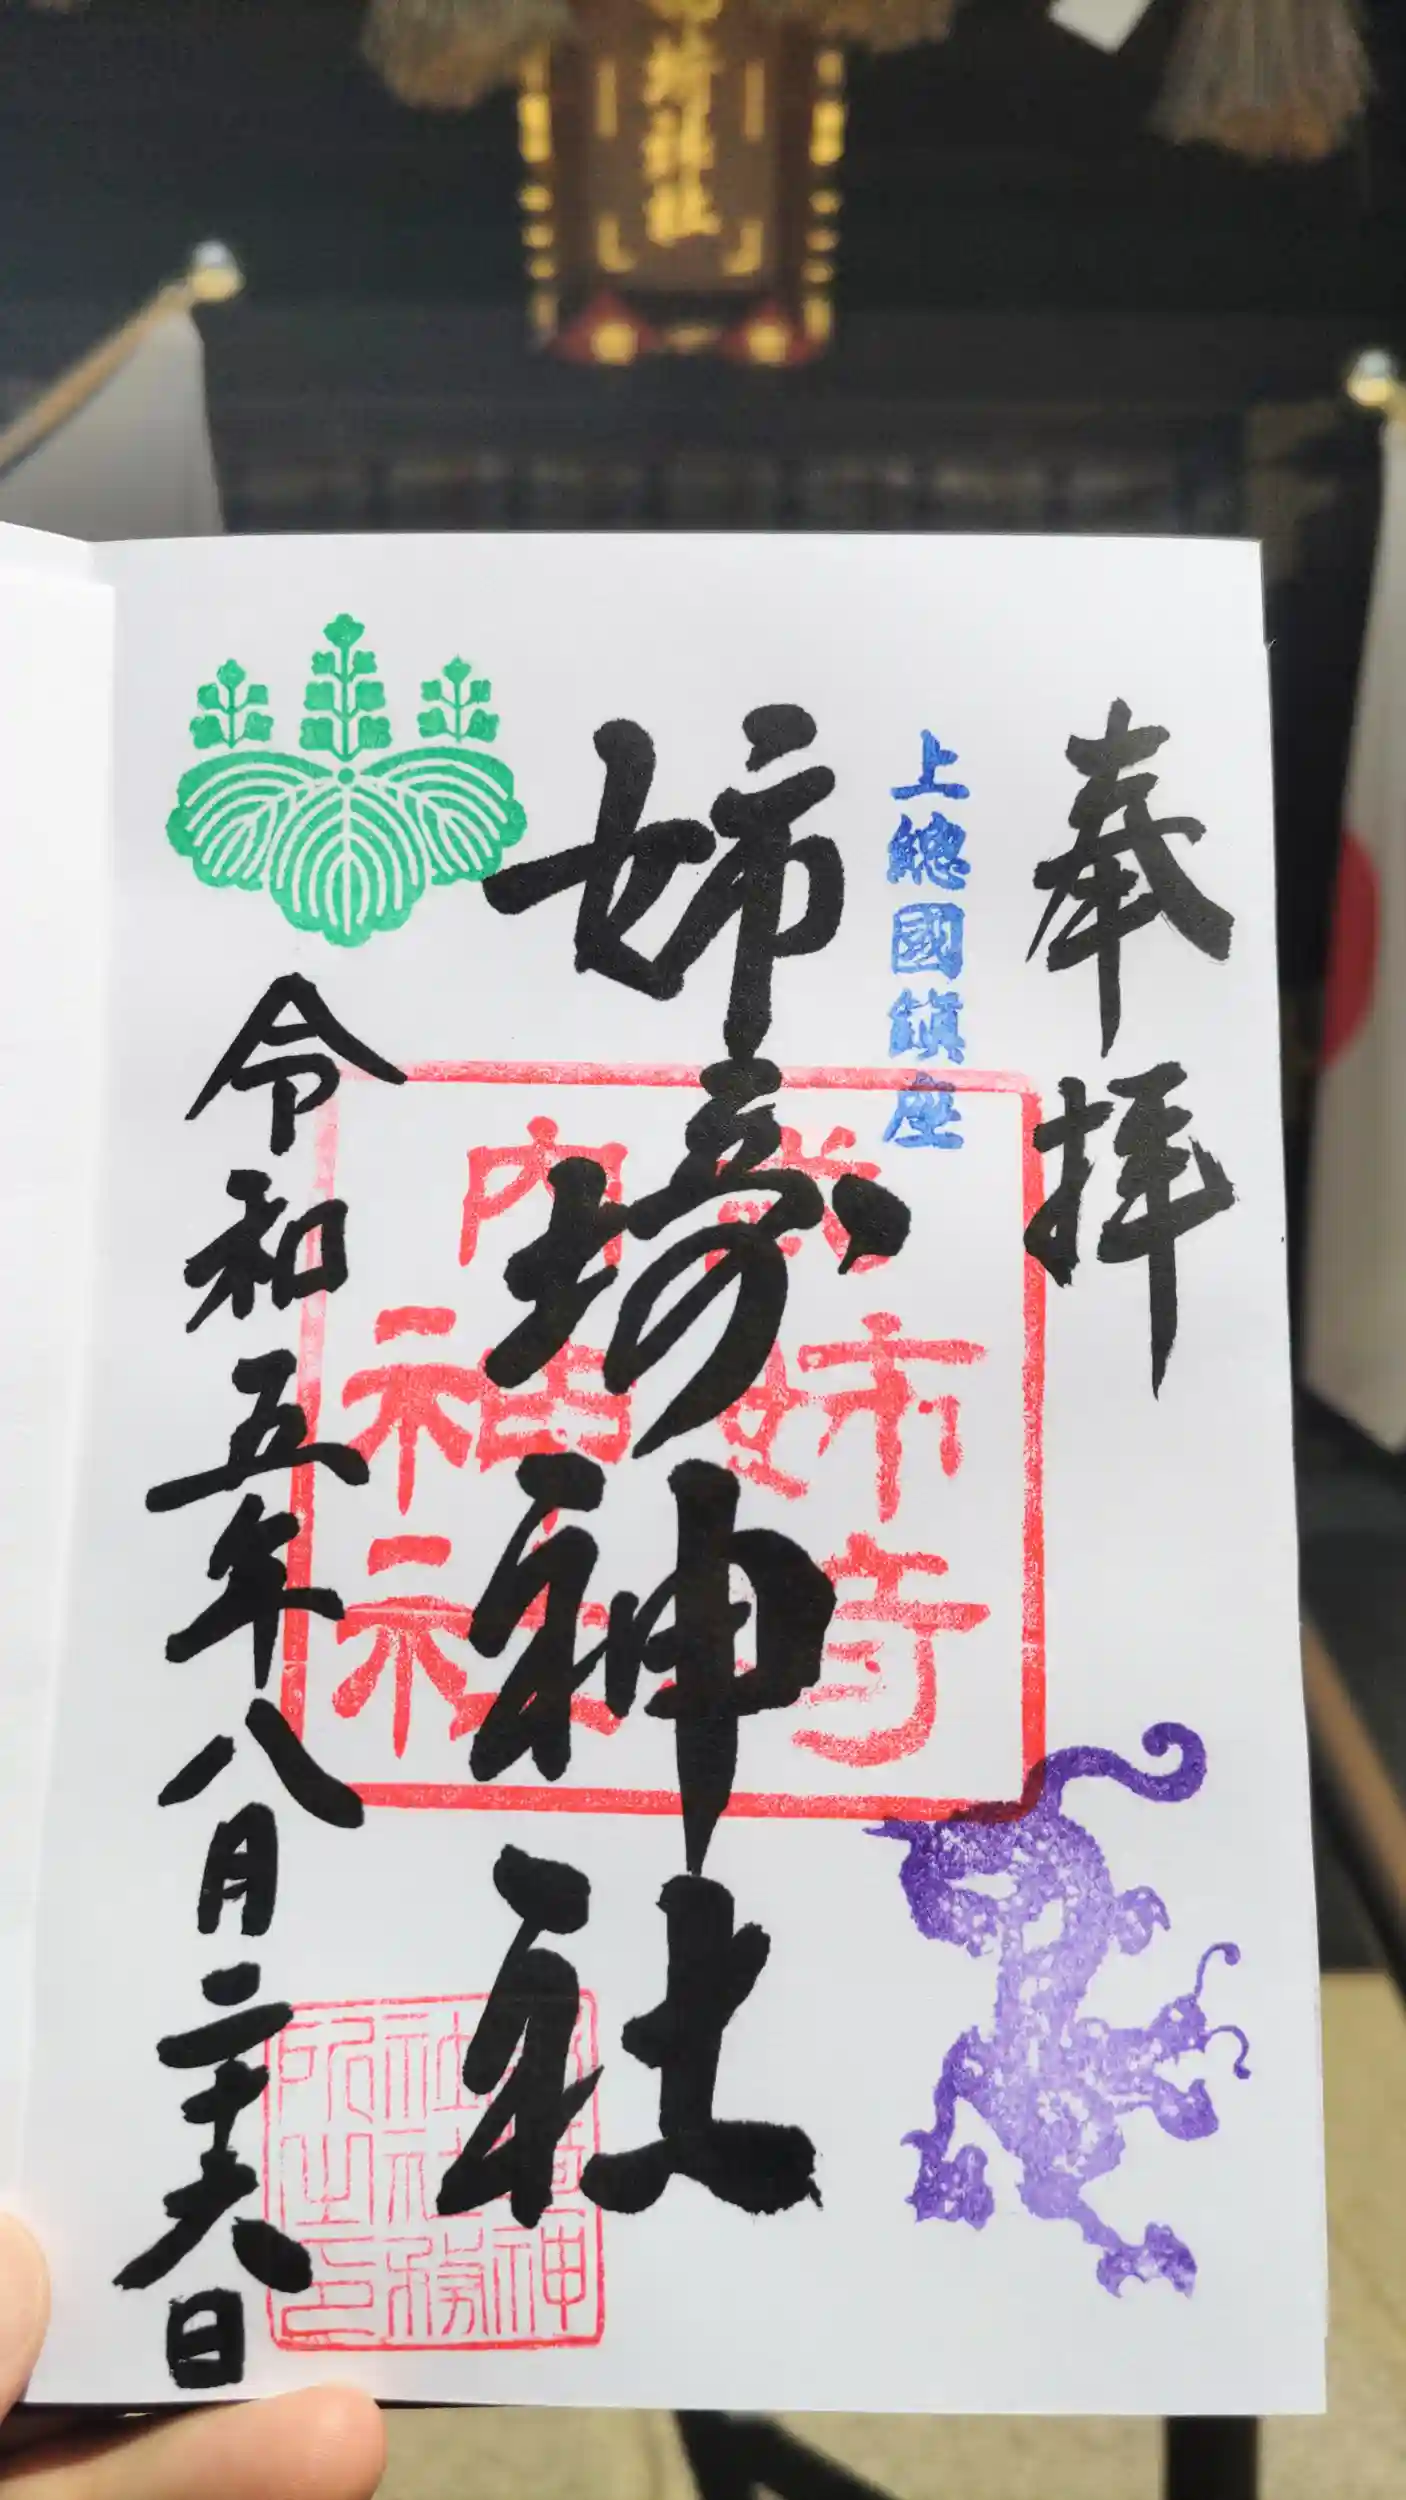 奉拝
上總國鎭座
姉埼神社
令和五年八月二十六日
式内
姉埼
神社
姉埼神
社社務
所之印